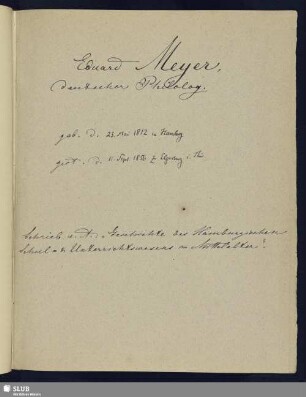 Eduard Meyer,
deutscher Philolog.
geb. d. 23. Mai 1812 in Hamburg
gest. d. 11. Sept 18
Schrieb u. A.: Geschichte des Hamburgischen
Schul- u. Unterrichtswesens im Mittelalter.
SLUB
Wir führen Wissen.